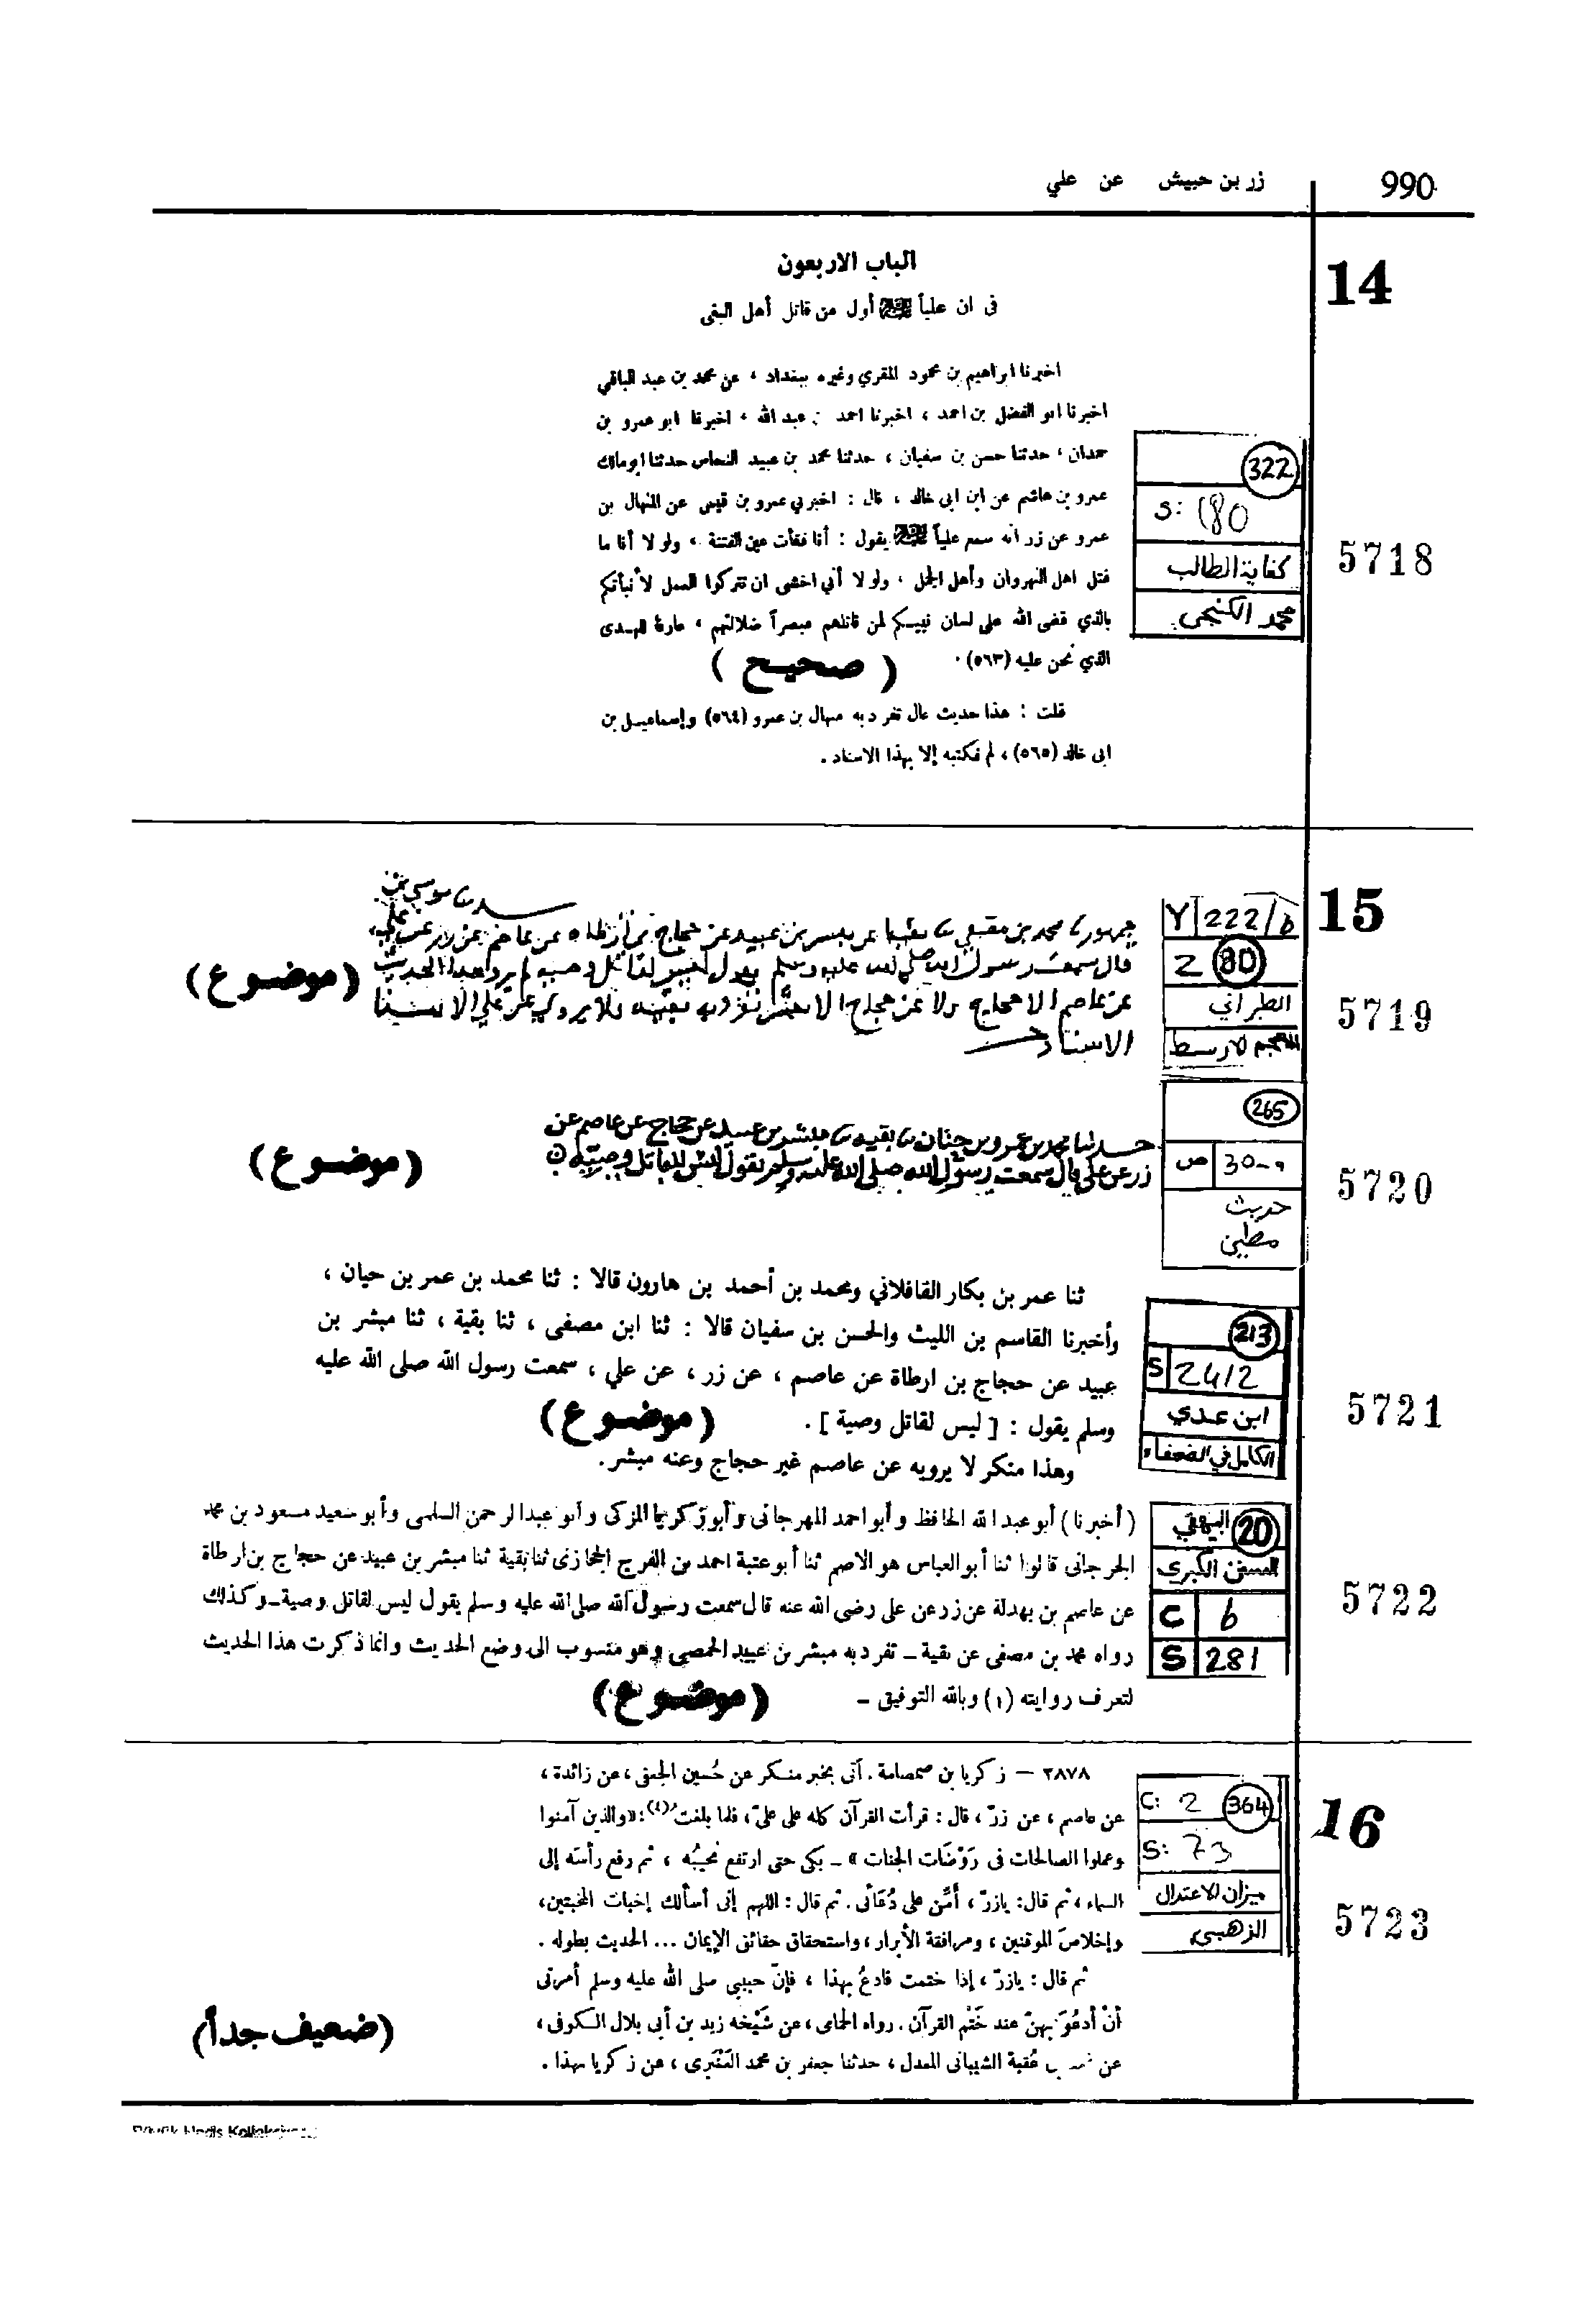 990
زر بن حبيش عن علي
14
الباب الاربعون
فى ان علياً أول من قاتل أهل البغى
اخبرنا ابراهيم بن محمود المقري وغيره ببغداد ، عن محمد بن عبد الباقي
اخبرنا ابو الفضل بن احمد ، اخبرنا احمد بن عبد الله ، اخبرنا ابو عمرو بن
حمدان ، حدثنا حسن بن سفيان ، حدثنا محمد بن عبيد النحاس حدثنا ابو مالك
عمرو بن هاشم عن ابن ابى خالد ، قال : اخبرني عمرو بن قيس عن المنهال بن
عمرو عن زر انه سمع علياً يقول : أنا فقأت عين الفتنة ، ولو لا أنا ما
قتل اهل النهروان وأهل الجمل ، ولو لا أني اخشى ان تتركوا العمل لأنبأتكم
بالذي قضى الله على لسان نبيكم لمن قاتلهم مبصراً ضلالتهم ، عارفاً للهدى
الذي نحن عليه (٥٦٣) .
( صحيح )
قلت : هذا حديث عال تفرد به منهال بن عمرو (٥٦٤) وإسماعيل بن
ابى خالد (٥٦٥) ، لم نكتبه إلا بهذا الاسناد .
322
S: 180
كفاية الطالب
محمد الكنجي
5718
15
Y 222/b
Z 80
الطبراني
المعجم الاوسط
5719
قال سمعت رسول الله صلى الله عليه وسلم يقول ليس لقاتل وصية لم يرو هذا الحديث
عن عاصم الا حجاج ولا عن حجاج الا مبشر تفرد به بقية ولا يروى عن علي الا بهذا
الاسناد
(موضوع)
265
ص 30-9
حديث
مطين
5720
حدثنا محمد بن عمرو بن حنان نا بقية نا مبشر بن عبيد عن حجاج عن عاصم عن
زر عن علي قال سمعت رسول الله صلى الله عليه وسلم يقول ليس للقاتل وصية
(موضوع)
ثنا عمر بن بكار القافلاني ومحمد بن أحمد بن هارون قالا : ثنا محمد بن عمر بن حيان ،
وأخبرنا القاسم بن الليث والحسن بن سفيان قالا : ثنا ابن مصفى ، ثنا بقية ، ثنا مبشر بن
عبيد عن حجاج بن ارطاة عن عاصم ، عن زر ، عن علي ، سمعت رسول الله صلى الله عليه
وسلم يقول : [ ليس لقاتل وصية ] .
(موضوع)
وهذا منكر لا يرويه عن عاصم غير حجاج وعنه مبشر.
213
S 24/2
ابن عدي
الكامل في الضعفاء
5721
(أخبرنا) أبو عبد الله الحافظ وأبو احمد المهرجانى وأبو زكريا المزكى وأبو عبد الرحمن السلمى وأبو سعيد مسعود بن محمد
الجرجانى قالوا ثنا أبو العباس هو الاصم ثنا أبو عتبة احمد بن الفرج الحجازى ثنا بقية ثنا مبشر بن عبيد عن حجاج بن ارطاة
عن عاصم بن بهدلة عن زر عن على رضى الله عنه قال سمعت رسول الله صلى الله عليه وسلم يقول ليس لقاتل وصية ـ وكذلك
رواه محمد بن مصفى عن بقية ـ تفرد به مبشر بن عبيد الحمصى وهو منسوب الى وضع الحديث وانما ذكرت هذا الحديث
لتعرف روايته (١) وبالله التوفيق ـ
(موضوع)
20 البيهقي
السنن الكبرى
C 6
S 281
5722
٢٨٧٨ — زكريا بن صمصامة . أتى بخبر منكر عن حُسين الجعفى ، عن زائدة ،
عن عاصم ، عن زرّ ، قال : قرأت القرآن كله على علىّ ، فلما بلغت (٤) : «والذين آمنوا
وعملوا الصالحات فى رَوْضَات الجنات » ـ بكى حتى ارتفع نحيبُه ، ثم رفع رأسَه إلى
السماء ، ثم قال : يازرّ ، أَمِّن على دُعَائى . ثم قال : اللهم إنى أسألك إخبات المخبتين ،
وإخلاصَ الموقنين ، ومرافقة الأبرار ، واستحقاق حقائق الإيمان ... الحديث بطوله .
ثم قال : يازرّ ، إذا ختمت فادعُ بهذا ، فإنّ حبيبى صلى الله عليه وسلم أمرنى
أنْ أدعُوَ بهنّ عند خَتْم القرآن . رواه الحمامى ، عن شَيْخه زيد بن أبى بلال الكوفى ،
عن عُقبة الشيبانى المعدل ، حدثنا جعفر بن محمد العَنْبَرى ، عن زكريا بهذا .
(ضعيف جداً)
C: 2 364
S: 73
ميزان الاعتدال
الذهبي
16
5723